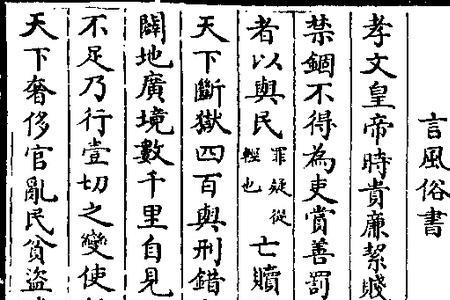 言風俗書
孝文皇帝時貴廉絜賤
禁錮不得為吏賞善罰
者以與民罪疑從輕也亡贖
天下斷獄四百與刑錯
闢地廣境數千里自見
不足乃行壹切之變使
天下奢侈官亂民貧盜